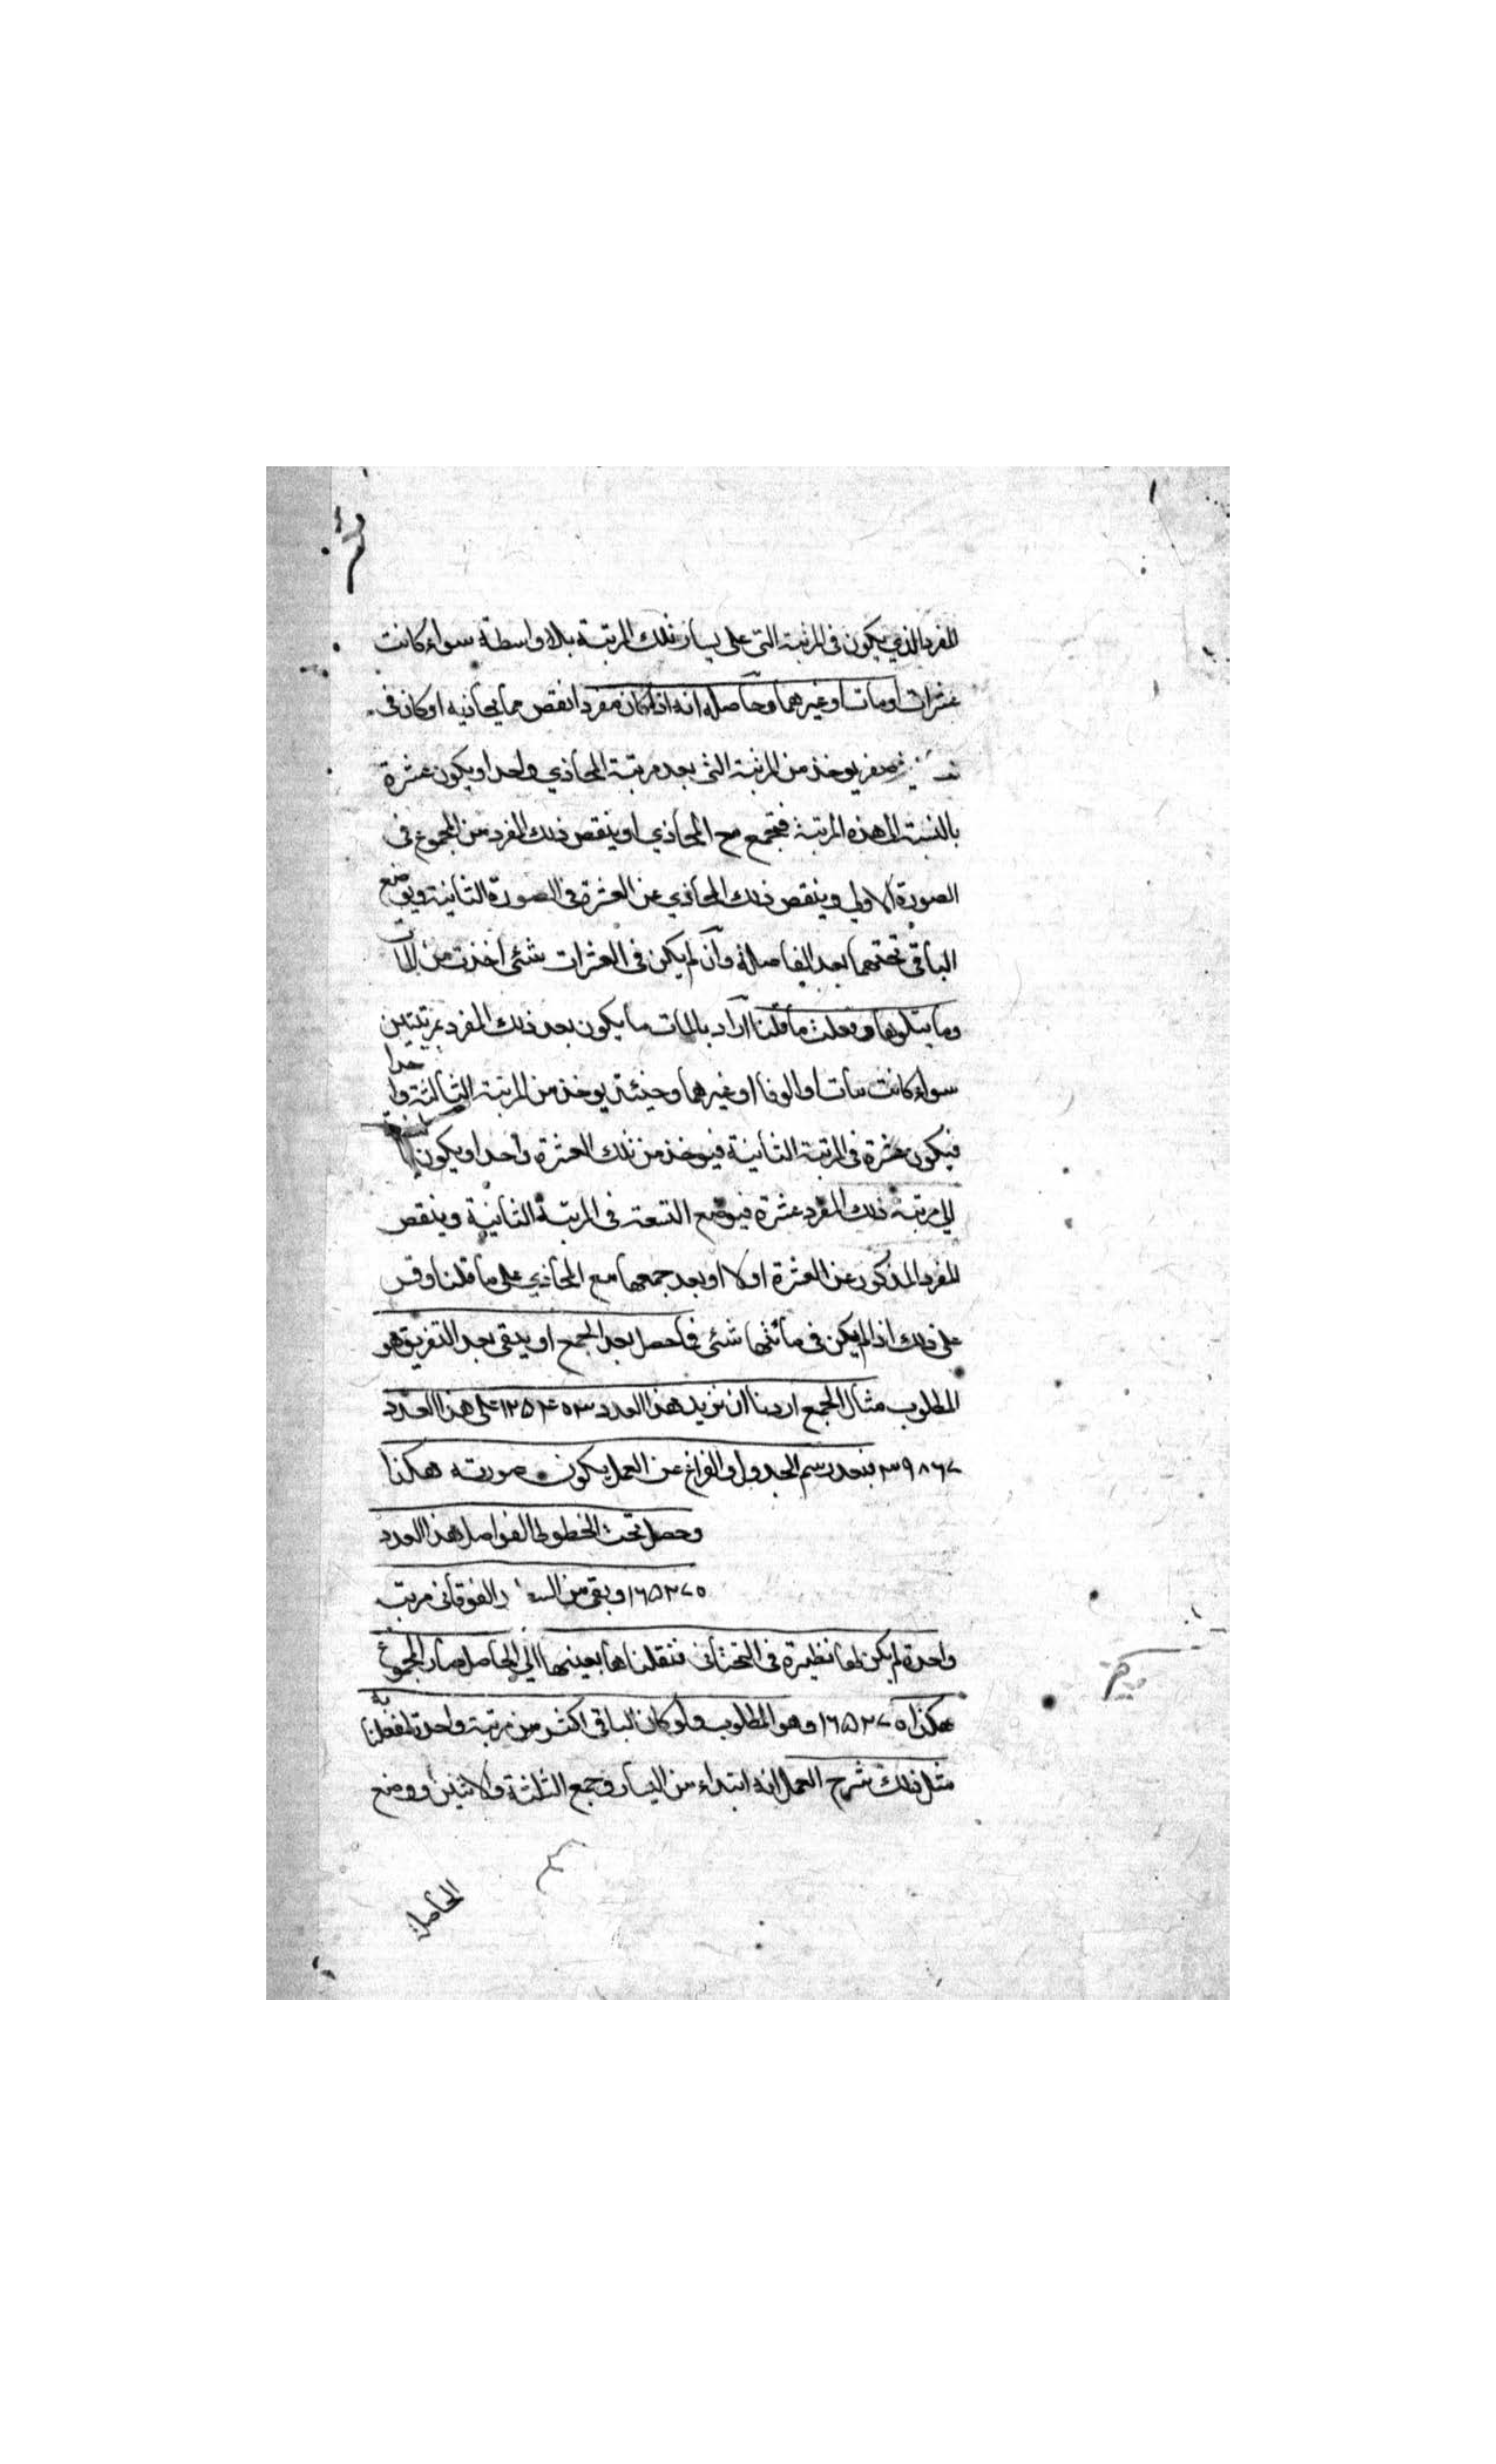 المفرد الذي يكون في المرتبة التي على يسار تلك المرتبة بلا واسطة سواء كانت
عشرات او مآت او غيرهما وحاصله انه اذا كان مفردا نقص مما يحاذيه او كان في
صفر يوخذ من المرتبة التي بعد مرتبة المحاذي واحدا ويكون عشرة
بالنسبة الى هذه المرتبة فتجمع مع المحاذي او ينقص ذلك المفرد من المجموع في
الصورة الاولى وينقص ذلك المحاذي عن العشرة في الصورة الثانية ويوضع
الباقي تحتهما بعد الفاصلة وان لم يكن في العشرات شئ اخذت من المآت
وما يتلوها وفعلت ما قلنا اراد بالمآت ما يكون بعد ذلك المفرد بمرتبتين
سواء كانت مآت او الوفا او غيرهما وحينئذ يوخذ من المرتبة الثالثة واحدا
فيكون عشرة في المرتبة الثانية فيوخذ من تلك العشرة واحدا ويكون
الى مرتبة ذلك المفرد عشرة فيوضع التسعة في المرتبة الثانية وينقص
المفرد المذكور عن العشرة اولا او بعد جمعها مع المحاذي على ما قلنا وقس
على ذلك اذا لم يكن في مائتها شئ فما حصل بعد الجمع او يبقى بعد التفريق هو
المطلوب مثال الجمع اردنا ان نزيد هذا العدد ١٢٥٤٠٣ على هذا العدد
٣٩٨٦٧ فبعد رسم الجدول والفراغ عن العمل يكون صورته هكذا
وحصل تحت الخطوط الفواصل هذا العدد
١٦٥٢٧٠ وبقي من الفوقاني مرتبة
واحدة لم يكن لها نظيرة في التحتاني فنقلناها بعينها الى الحاصل صار المجموع
هكذا ١٦٥٢٧٠ وهو المطلوب ولو كان الباقي اكثر من مرتبة واحدة لفعلنا به
مثل ذلك شرح العمل انه ابتداء من اليسار وجمع الثلثة والاثنين ووضع
الحاصل